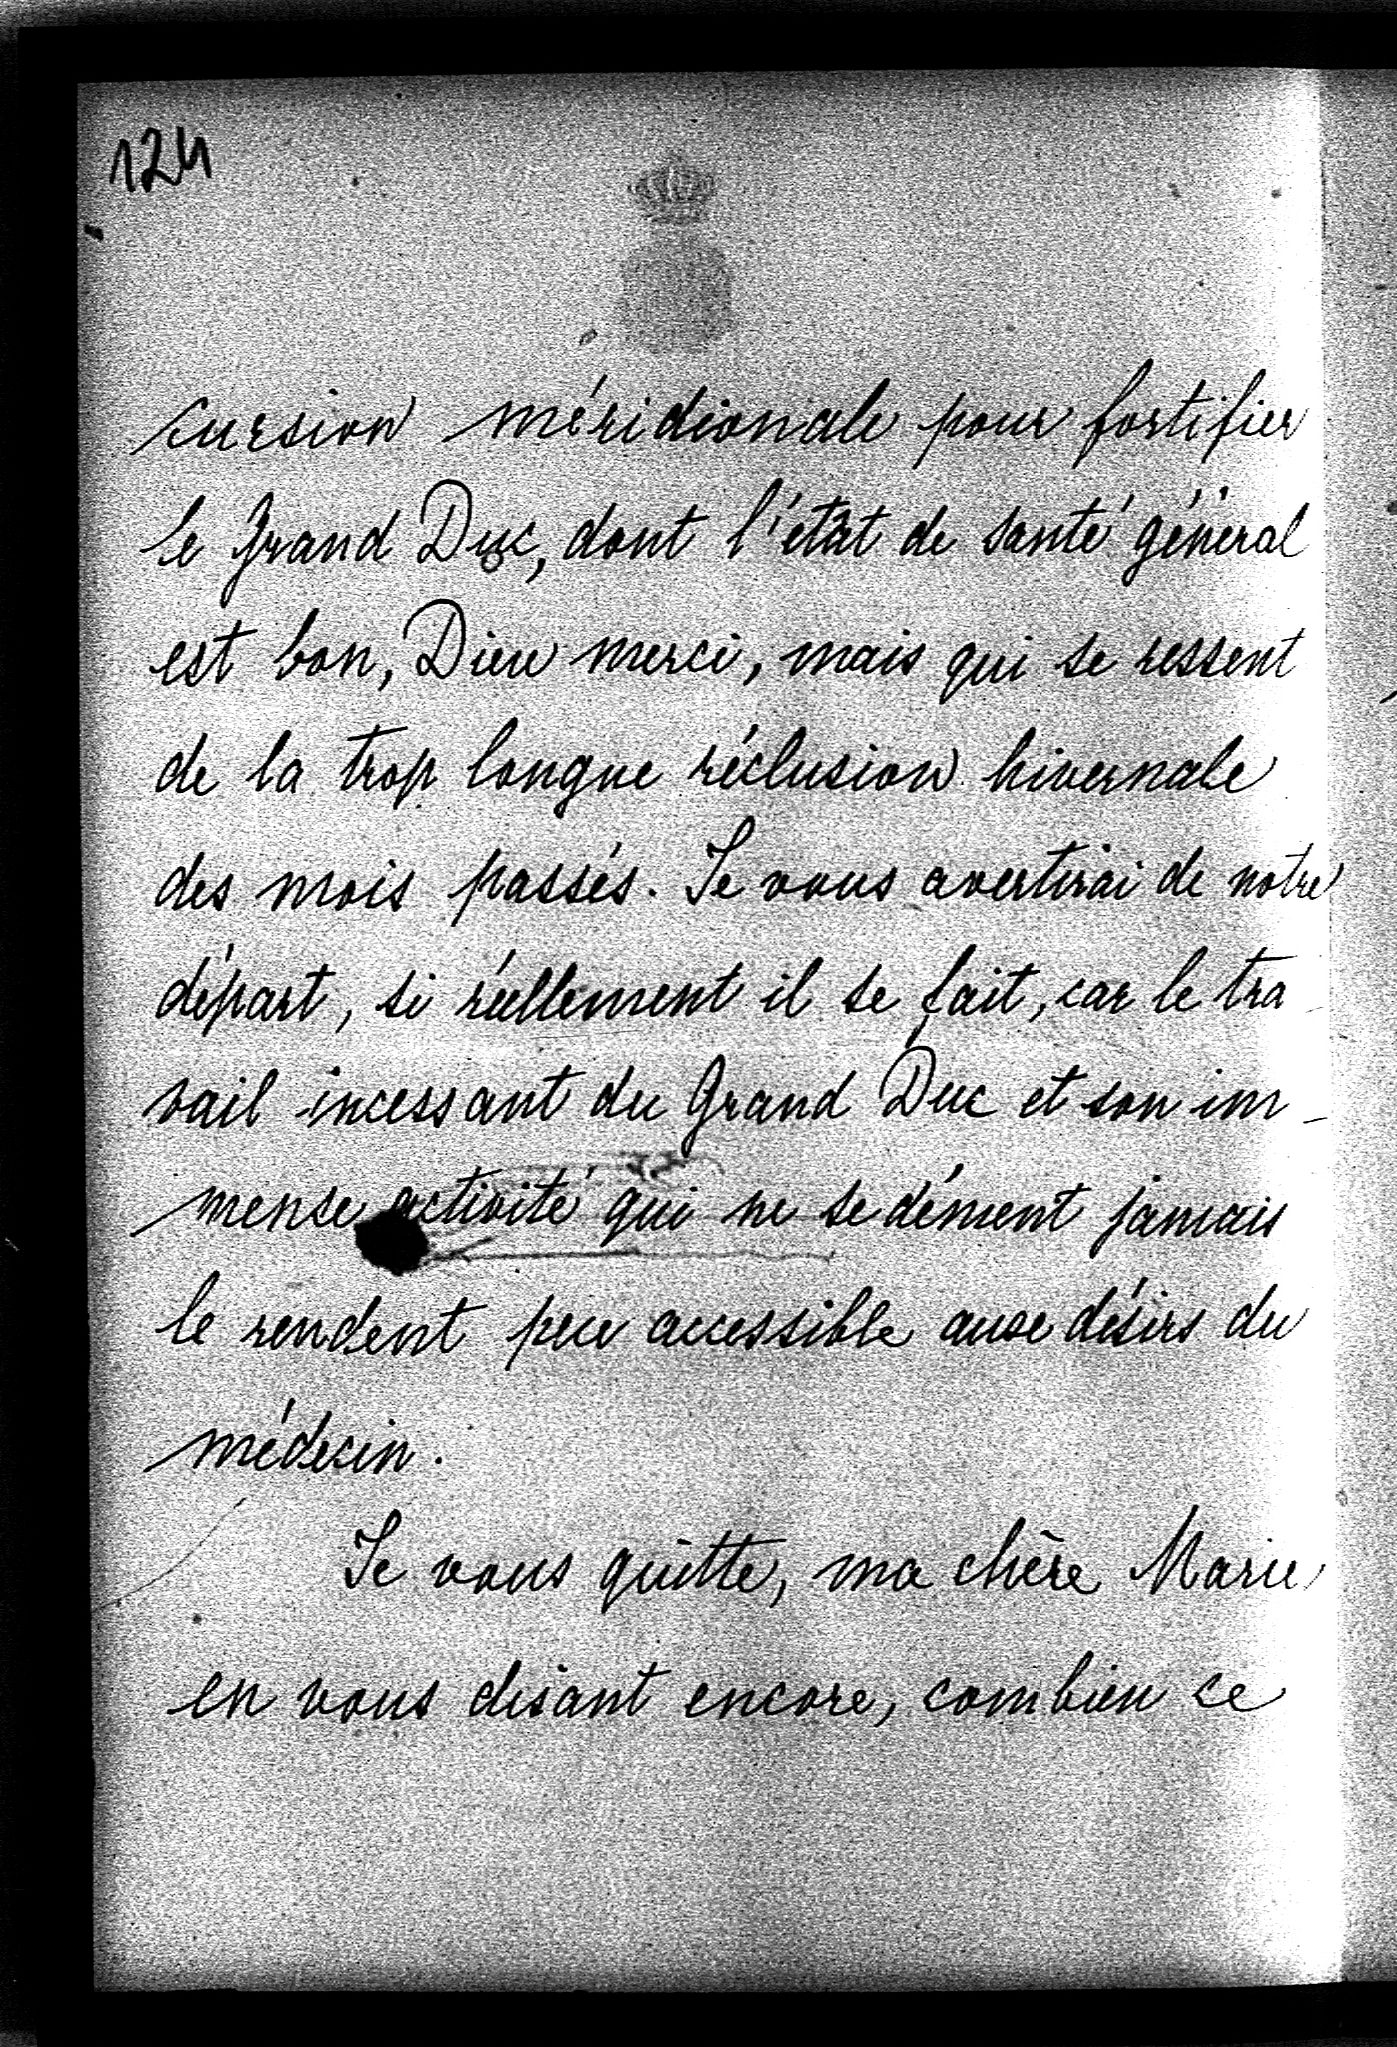 124
cursion méridionale pour fortifier
le Grand Duc, dont l'état de santé général
est bon, Dieu merci, mais qui se ressent
de la trop longue réclusion hivernale
des mois passés. Je vous avertirai de notre
départ, si réellement il se fait, car le tra
vail incessant du Grand Duc et son im-
mense activité qui ne se dément jamais
le rendent peu accessible aux désirs du
médecin.
Je vous quitte, ma chère Marie
en vous disant encore, combien ce